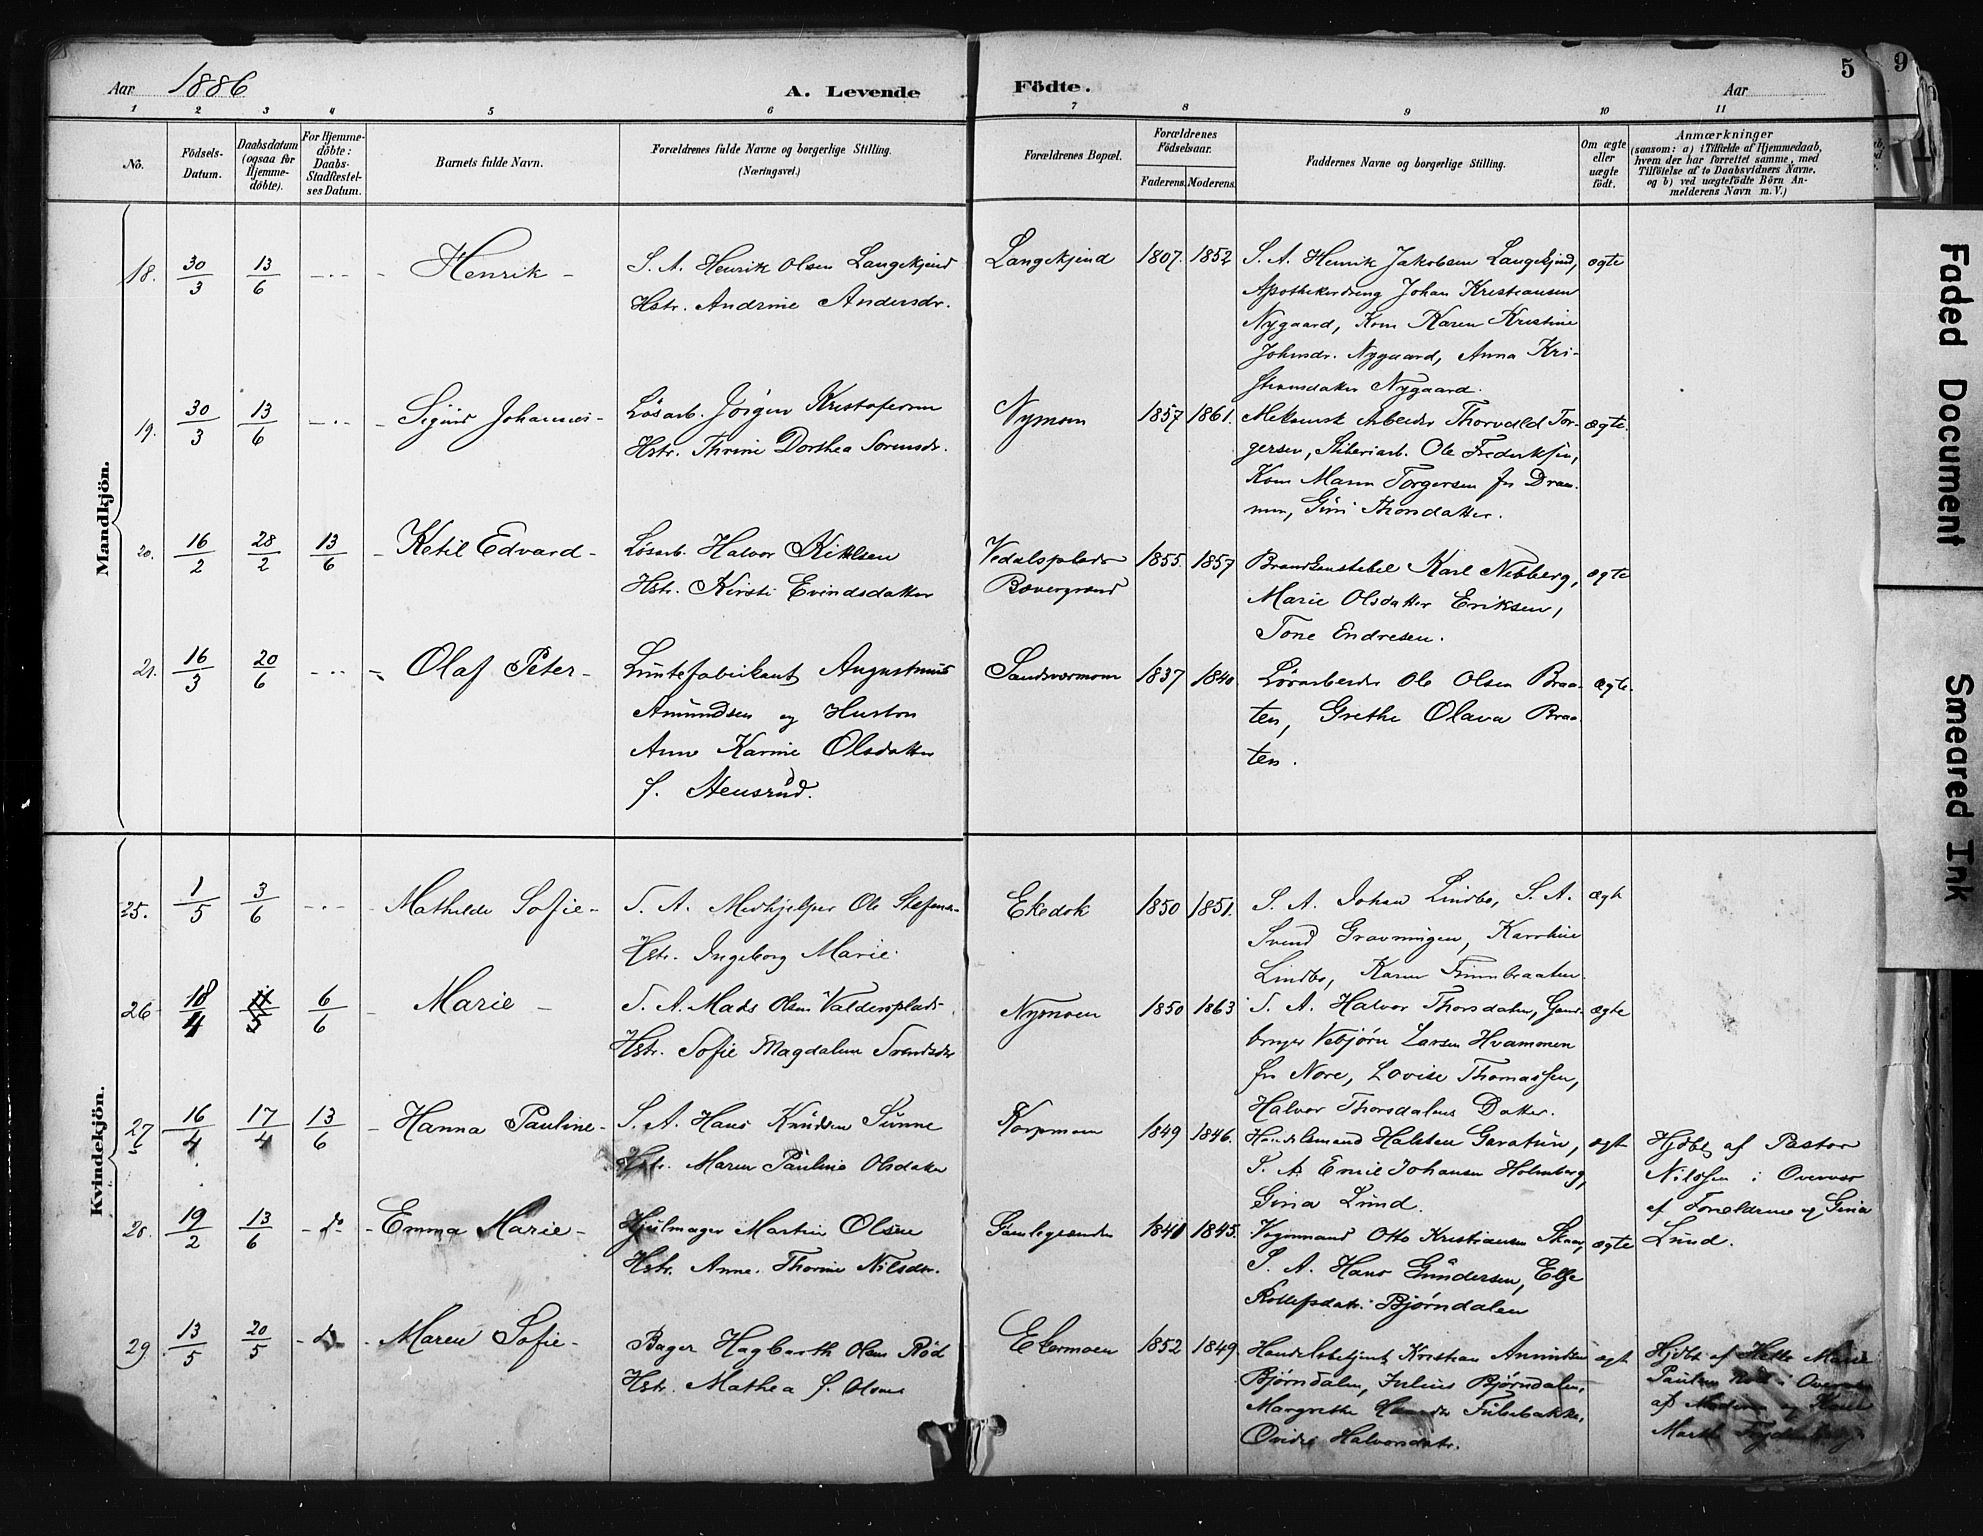 Aar 1886 A. Levende Födte. Aar 5 9
1 2 3 4 5 6 7 8 9 10 11
No.
Födsels-
Datum.
Daabsdatum
(ogsaa for
Hjemme-
döbte).
For Hjemme-
döbte:
Daabs-
Stadfæstel-
ses Datum.
Barnets fulde Navn.
Forældrenes fulde Navne og borgerlige Stilling.
(Næringsvei.)
Forældrenes Bopæl.
Forældrenes
Födselsaar.
Faderens. Moderens.
Faddernes Navne og borgerlige Stilling.
Om ægte
eller
uægte
födt.
Anmærkninger
(saasom: a) i Tilfælde af Hjemmedaab,
hvem der har forrettet samme, med
Tilföielse af to Daabsvidners Navne.
og b) ved uægtefödte Börn An-
melderens Navn m. V.)
Mandkjön.
18. 30/3 13/6 Henrik
S. A. Henrik Olsen Langekjend
Hstr. Andrine Andersdr.
Langekjend 1807. 1852
S. A. Henrik Jakobsen Langekjend,
Apothekerdreng Johan Kristiansen
Nygaard, Kone Karen Kristine
Johnsdr. Nygaard, Anna Kri-
stiansdatter Nygaard.
ægte
19. 30/3 13/6 Sigurd Johannes
Løsarb. Jörgen Kristofersen
Hstr. Thrine Dorthea Sorensdr.
Nymoen 1857 1861.
Mekanisk Arbeider Thorvald Tor-
gersen, Sliberiarb. Ole Frederiksen,
Kone Maren Torgersen fra Dram-
men, Thorsdatter.
ægte.
20. 16/2 28/2 13/6 Ketil Edvard
Løsarb. Halvor Kittelsen
Hstr. Kirsti Evindsdatter
Vedalsplads
Bævergrend
1855. 1857
Brandkonstabel Karl Nebberg,
Marie Olsdatter Eriksen,
Tone Endresen.
ægte
21. 16/3 20/6 Olaf Peter
Luntefabrikant Augustinus
Amundsen og Hustru
Anne Karine Olsdatter
f. Stensrud.
Sandsværmoen 1837 1840
Løsarbeider Ole Olsen Braa-
ten, Grethe Olava Braa-
ten.
ægte.
Kvindekjön.
25. 1/5 3/6 Mathilde Sofie
S. A. Medhjelper Ole Stefens.
Hstr. Ingeborg Marie
Ekedok 1850 1851.
S. A. Johan Lindbo, S. A.
Svend Gravningen, Karoline
Lindbo, Karen Finnbraaten.
ægte
26 18/4 11/5 6/6 Marie
S. A. Mads Olsen Valdersplads
Hstr. Sofie Magdalene Svendsdr
Nymoen 1850 1863
S. A. Halvor Thorsdalen, Gaard-
bruger Vebjørn Larsen Hvammen
fra Nore, Lovise Thomassen,
Halvor Thorsdalens Datter.
ægte
27 16/4 17/4 13/6 Hanna Pauline
S. A. Hans Knudsen Sunne
Hstr. Maren Pauline Olsdatter
Korpmoen 1849 1846.
Handelsmand Halsten Garatun,
S. A. Emil Johansen Holmberg,
Gina Lund.
ægte
Hjdbt af Pastor
Nilssen i Overvær
af Forældrene og Gina
Lund.
28. 19/2 13/6 do Emma Marie
Hjulmager Martin Olsen
Hstr. Anne Thorine Nilsdr.
Gamlegrenden 1840 1845.
Vognmand Otto Kristiansen Skaar,
S. A. Hans Gundersen, Elsie
Rollefsdatr. Bjørndalen
ægte
29 13/5 20/5 do Maren Sofie
Bager Hagbarth Olsen Rød
Hstr. Mathea f. Olsen
Ekermoen 1852 1849.
Handelsbetjent Kristian Amundsen
Bjørndalen, Julius Bjørndalen,
Margrethe Fulebakke,
Halvorsdatr.
ægte
Hjdbt af Marie
Paulsen Rød i Overvær
af Moderen og
Marth
Faded Document
Smeared Ink